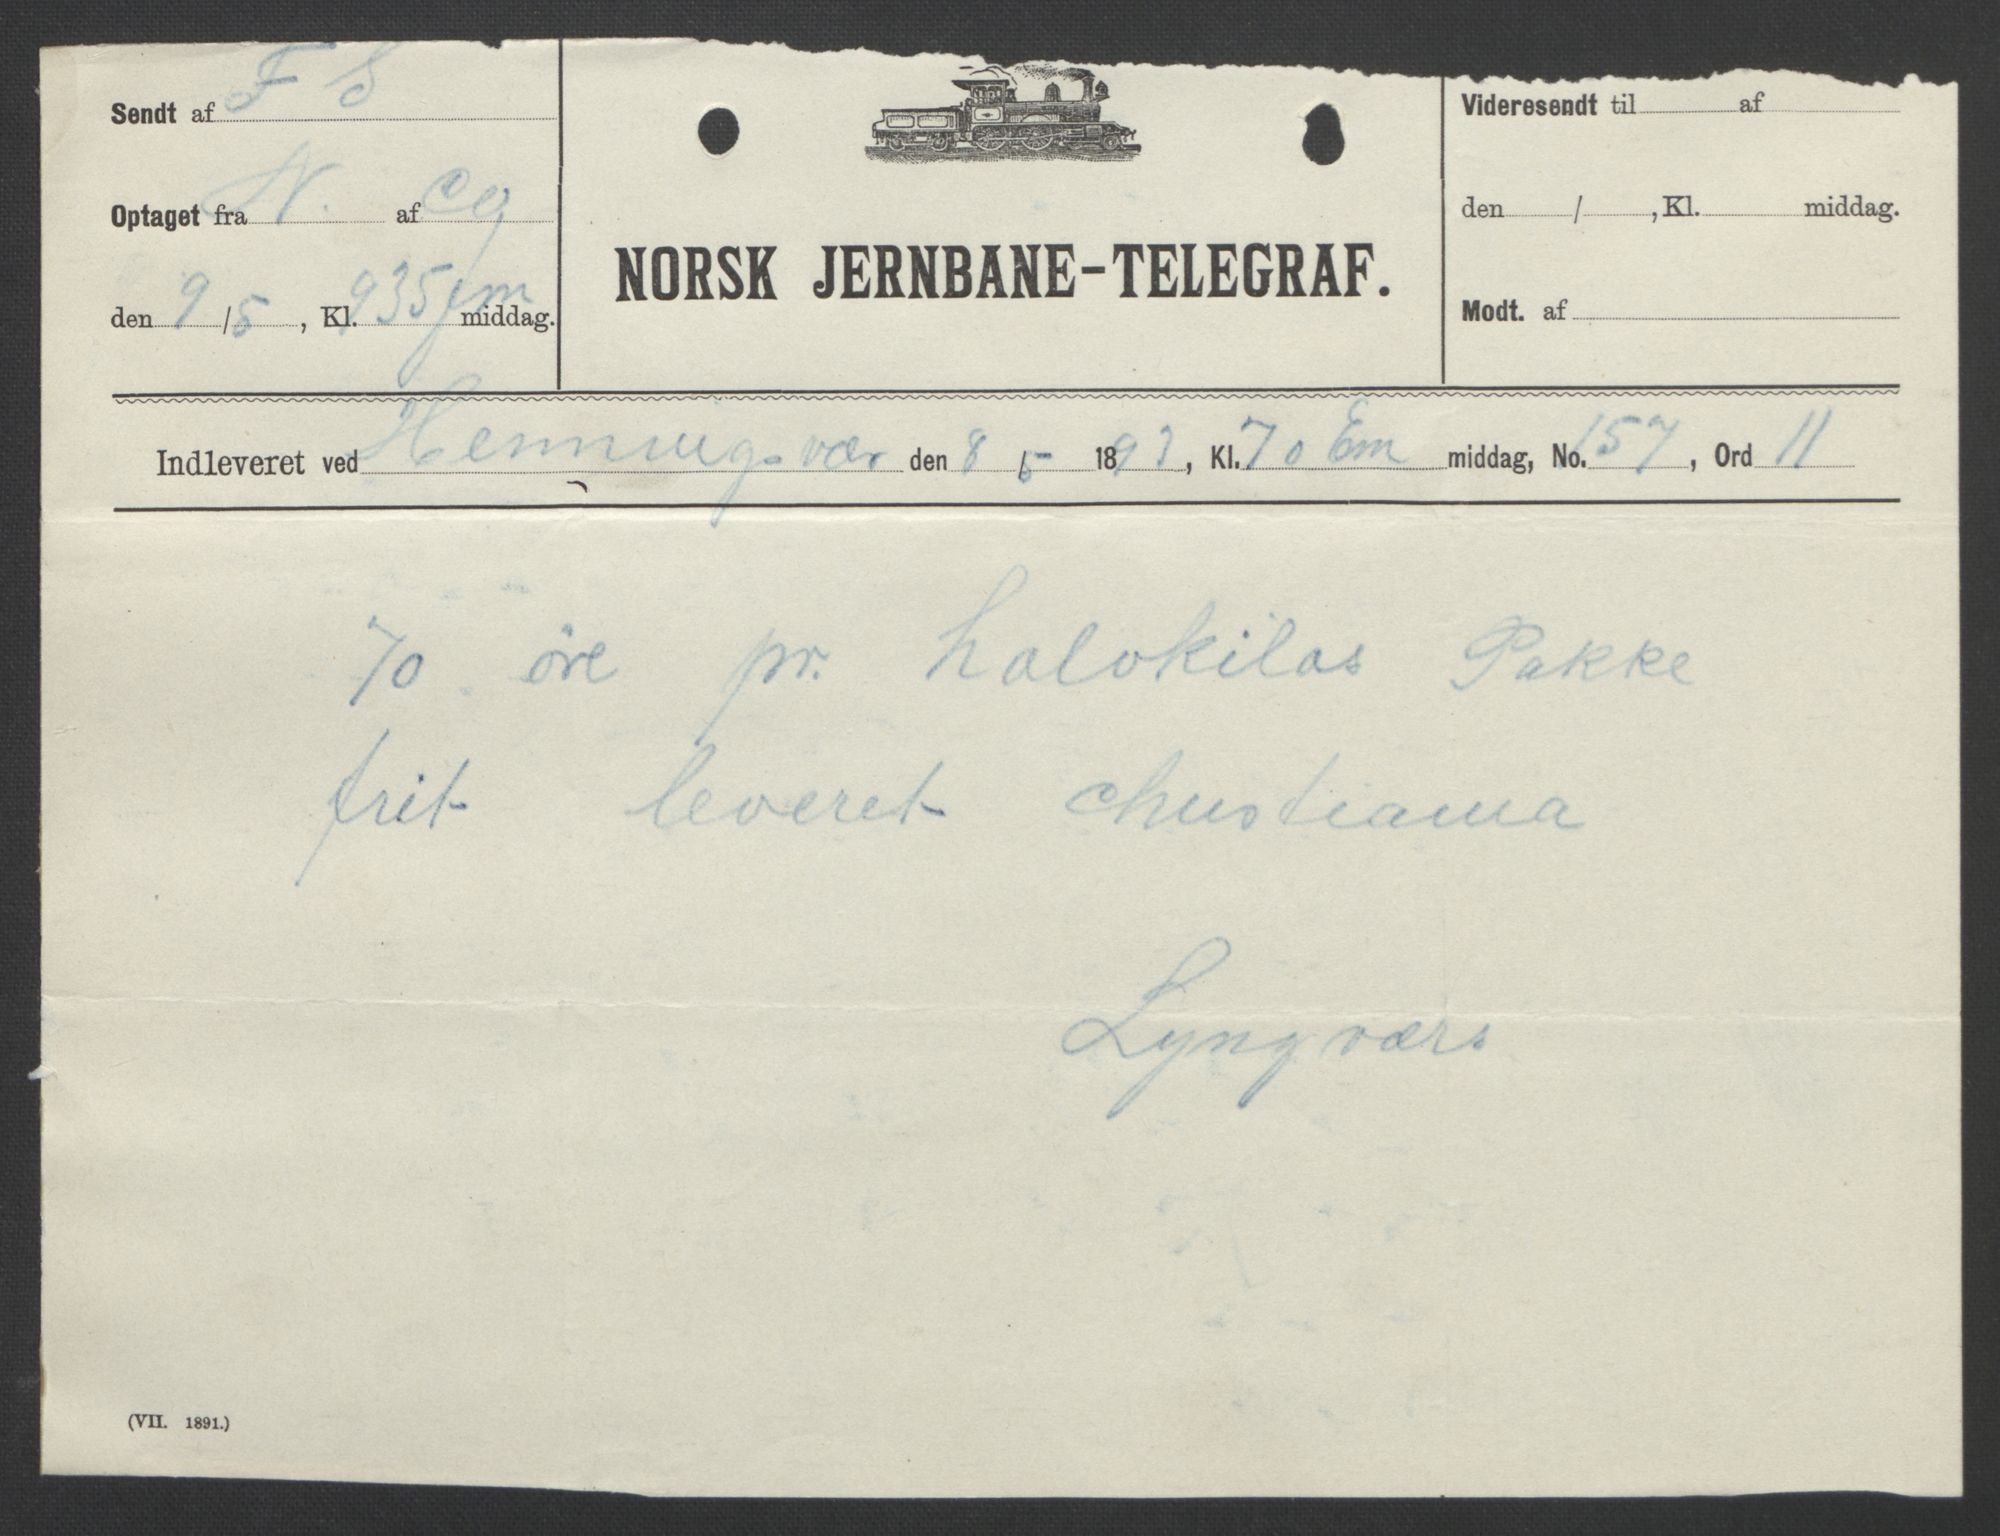 Sendt af F S
Optaget fra N. af Cg
den 9/5, Kl. 935 fm middag.
NORSK JERNBANE-TELEGRAF.
Videresendt til af
den / , Kl. middag.
Modt. af
Indleveret ved Henningsvær den 8/5 1893, Kl. 70 Em middag, No. 157, Ord 11
70 öre pr. halvkilos Pakke
frit leveret christiania
Lyngværs
(VII. 1891.)